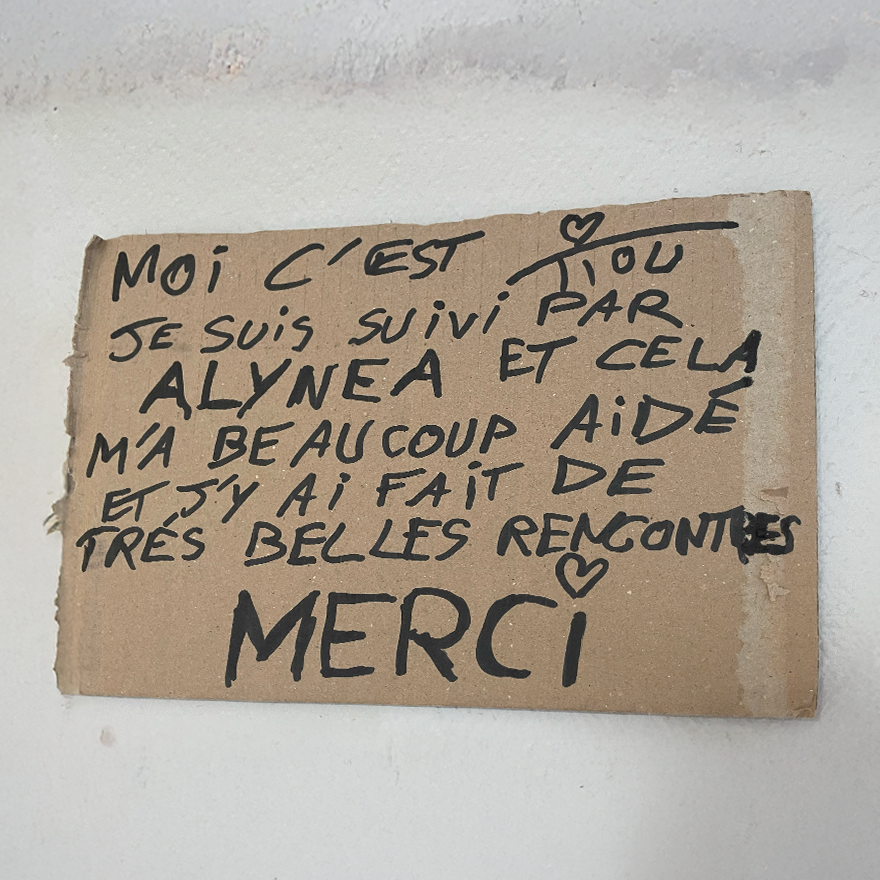 MOi C'EST TiOU
JE SUiS SUiVi PAR
ALYNEA ET CELA
M'A BEAUCOUP AiDÉ
ET J'Y Ai FAiT DE
TRÉS BELLES RENCONTRES
MERCi